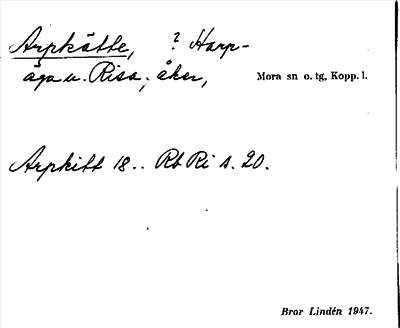 Arpkätte, ? Harp-
äga u. Risa; åker, Mora sn o. tg, Kopp. l.
Arpkitt 18.. Rb Ri s. 20.
Bror Lindén 1947.